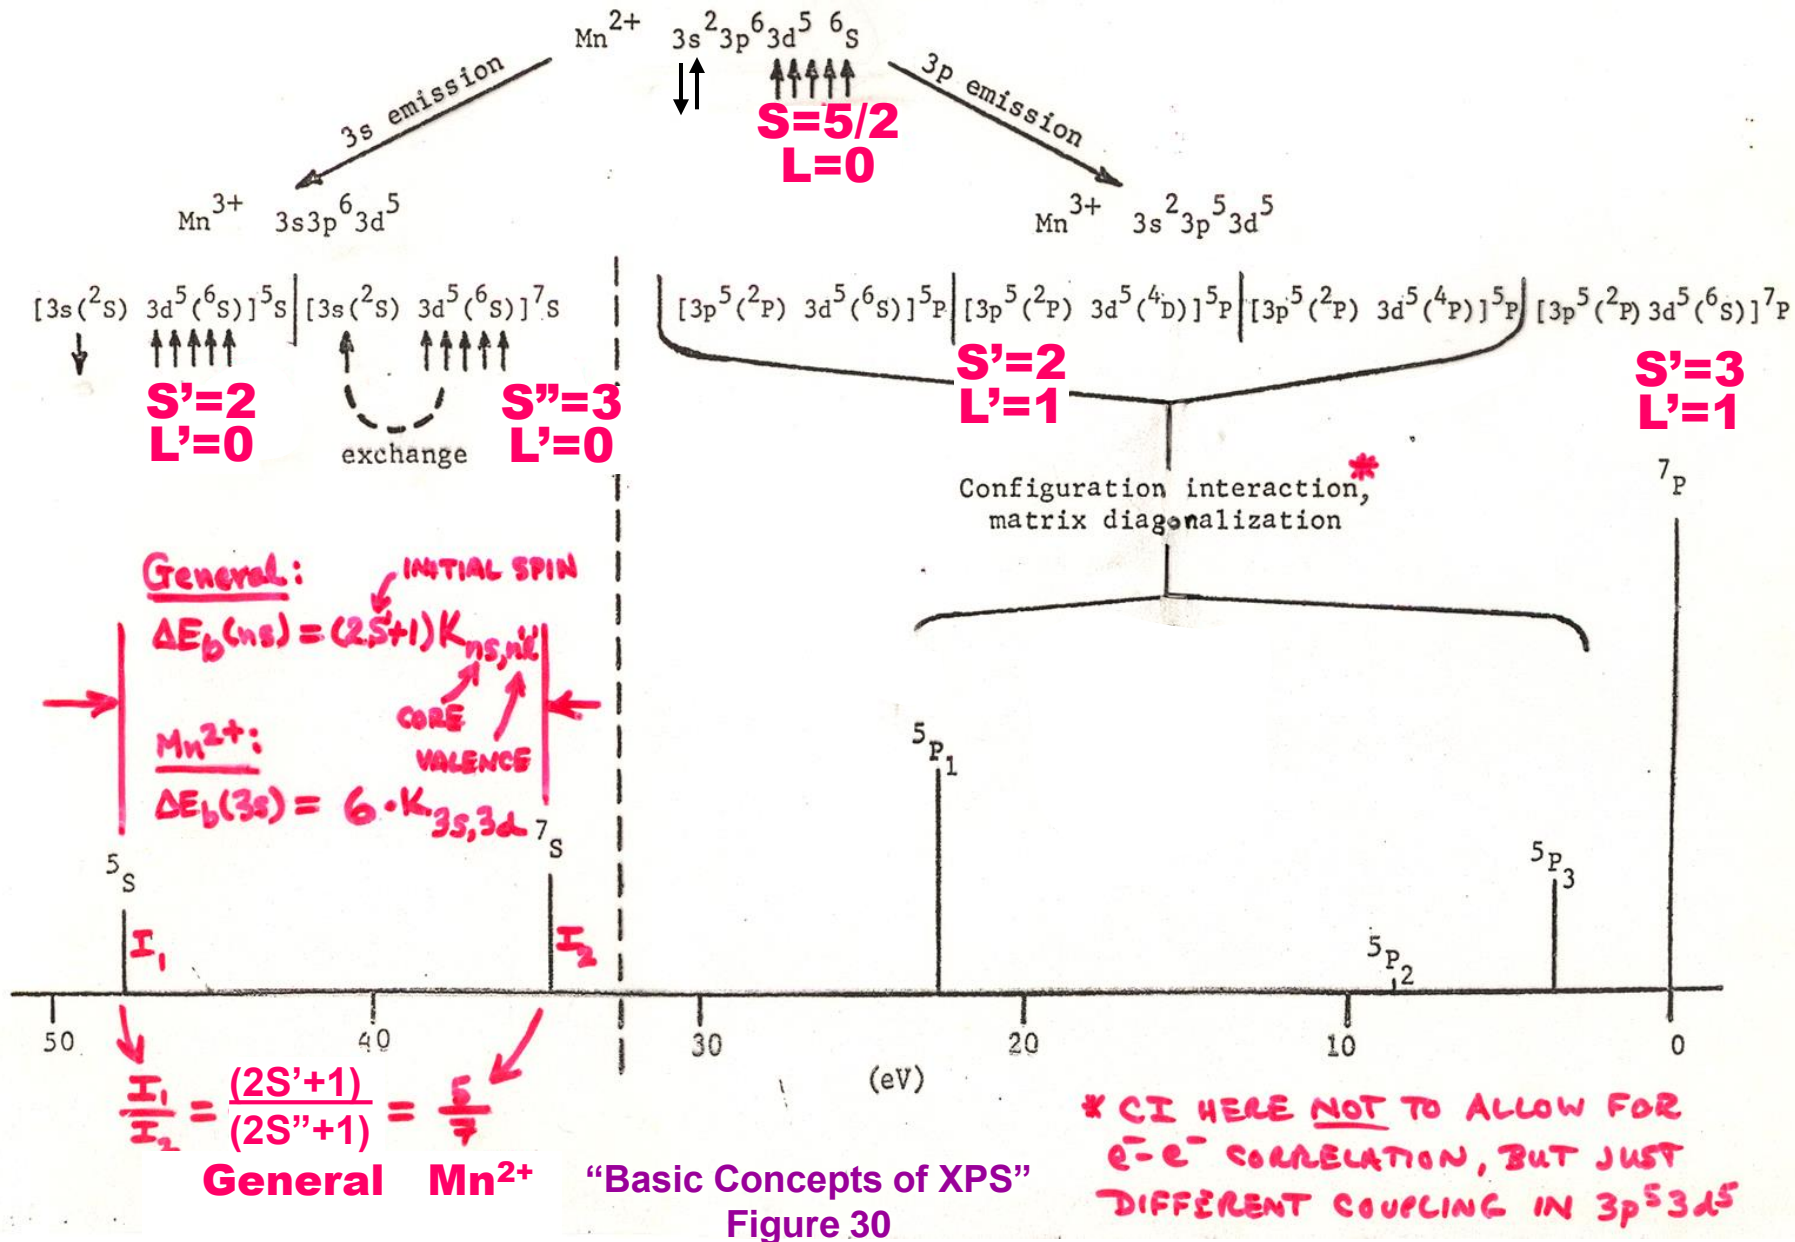 Mn²⁺ 3s²3p⁶3d⁵ ⁶S
3s emission
3p emission
S=5/2
L=0
Mn³⁺ 3s3p⁶3d⁵
Mn³⁺ 3s²3p⁵3d⁵
[3s(²S) 3d⁵(⁶S)]⁵S [3s(²S) 3d⁵(⁶S)]⁷S
[3p⁵(²P) 3d⁵(⁶S)]⁵P [3p⁵(²P) 3d⁵(⁴D)]⁵P [3p⁵(²P) 3d⁵(⁴P)]⁵P [3p⁵(²P) 3d⁵(⁶S)]⁷P
S'=2
L'=0
exchange
S"=3
L'=0
S'=2
L'=1
S'=3
L'=1
Configuration interaction,*
matrix diagonalization
General:
INITIAL SPIN
ΔE_b(ns) = (2S+1)K_ns,n'l
CORE
VALENCE
Mn²⁺:
ΔE_b(3s) = 6·K_3s,3d
⁵S
⁷S
I₁
I₂
⁵P₁
⁵P₂
⁵P₃
⁷P
50 40 30 20 10 0
(eV)
I₁/I₂ = (2S'+1)/(2S"+1) = 5/7
General Mn²⁺
"Basic Concepts of XPS"
Figure 30
* CI HERE NOT TO ALLOW FOR
e⁻-e⁻ CORRELATION, BUT JUST
DIFFERENT COUPLING IN 3p⁵3d⁵